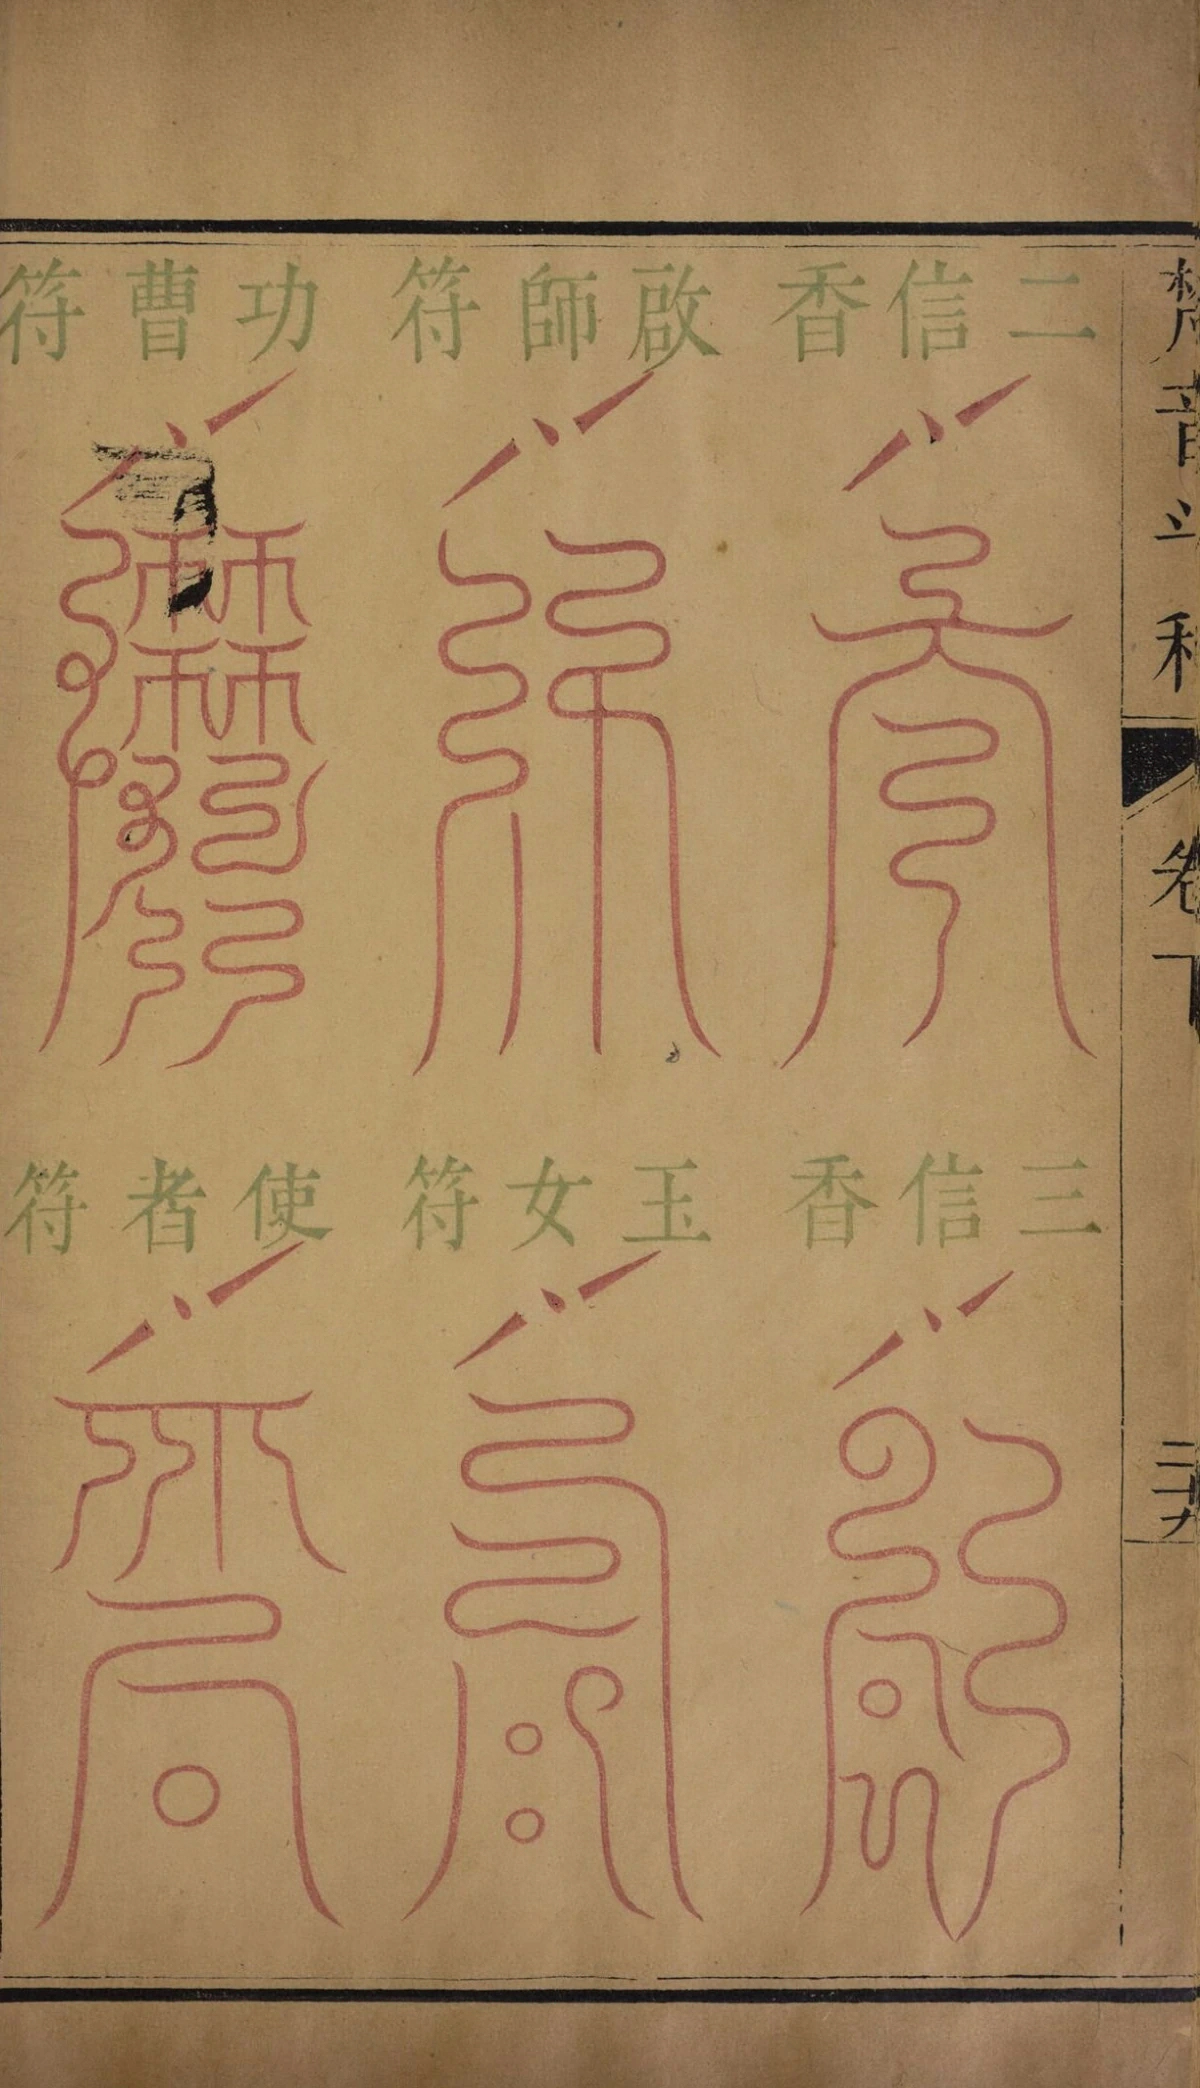 梵音斗科
卷下
二十九
二信香
啟師符
功曹符
三信香
玉女符
使者符